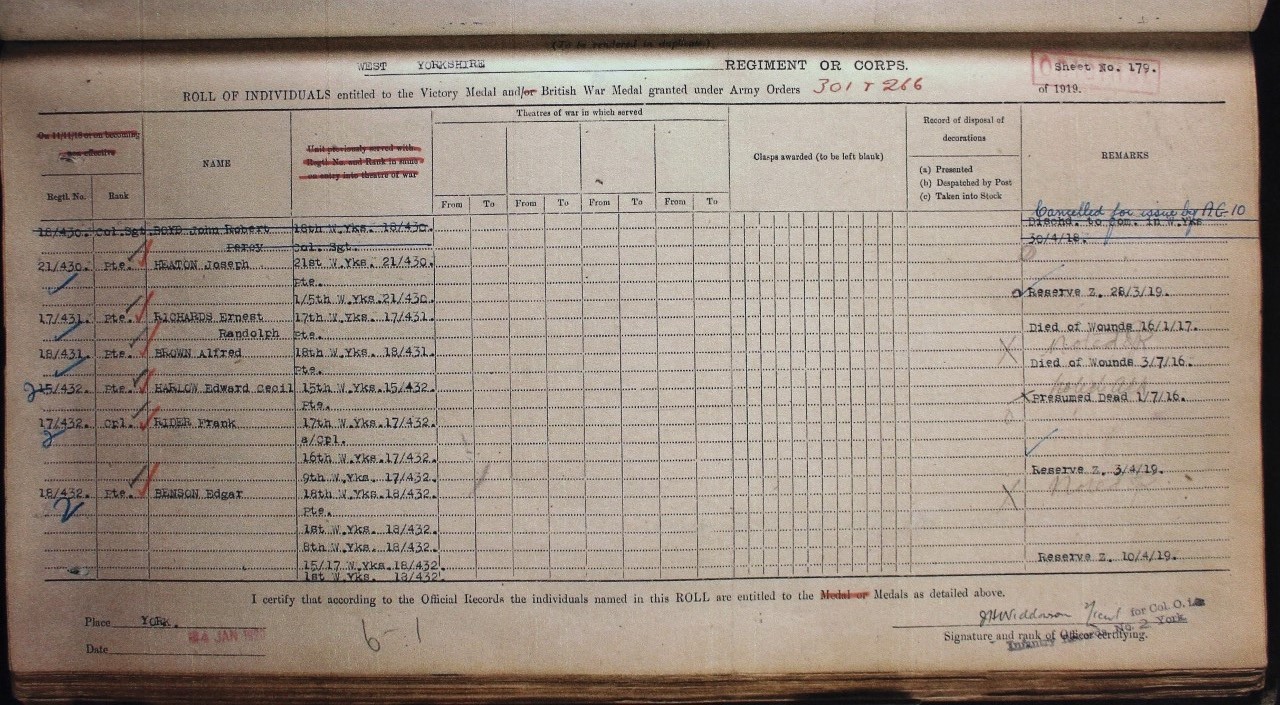 (To be rendered in duplicate)
WEST YORKSHIRE REGIMENT OR CORPS. Sheet No. 179.
ROLL OF INDIVIDUALS entitled to the Victory Medal and/or British War Medal granted under Army Orders 301 & 266 of 1919.
On 11/11/18 or on becoming non-effective
Regtl. No. Rank
NAME
Unit previously served with. Regtl. No. and Rank in same on entry into theatre of war
Theatres of war in which served
From To From To From To From To
Clasps awarded (to be left blank)
Record of disposal of decorations
(a) Presented
(b) Despatched by Post
(c) Taken into Stock
REMARKS
Cancelled for issue by AG-10
18/430. Col.Sgt. BOYD John Robert 18th W.Yks. 18/430. Dischd. to Com. in W.Yks
Percy Col. Sgt. 30/4/18.
21/430. Pte. HEATON Joseph 21st W.Yks. 21/430.
Pte.
1/5th W.Yks.21/430. Reserve Z. 28/3/19.
17/431. Pte. RICHARDS Ernest 17th W.Yks. 17/431.
Randolph Pte. Died of Wounds 16/1/17.
18/431. Pte. BROWN Alfred 18th W.Yks. 18/431.
Pte. Died of Wounds 3/7/16.
15/432. Pte. HARLOW Edward Cecil 15th W.Yks.15/432.
Pte. Presumed Dead 1/7/16.
17/432. Cpl. RIDER Frank 17th W.Yks.17/432.
2 a/Cpl.
16th W.Yks.17/432.
9th W.Yks. 17/432. Reserve Z. 3/4/19.
18/432. Pte. BENSON Edgar 18th W.Yks.18/432.
2 Pte.
1st W.Yks. 18/432.
8th W.Yks. 18/432.
15/17 W.Yks.18/432. Reserve Z. 10/4/19.
1st W.Yks. 18/432.
I certify that according to the Official Records the individuals named in this ROLL are entitled to the Medal or Medals as detailed above.
Place YORK. for Col. O. I/c
JAN 6-1 Signature and rank of Officer certifying.
Infantry No. 2 York
Date